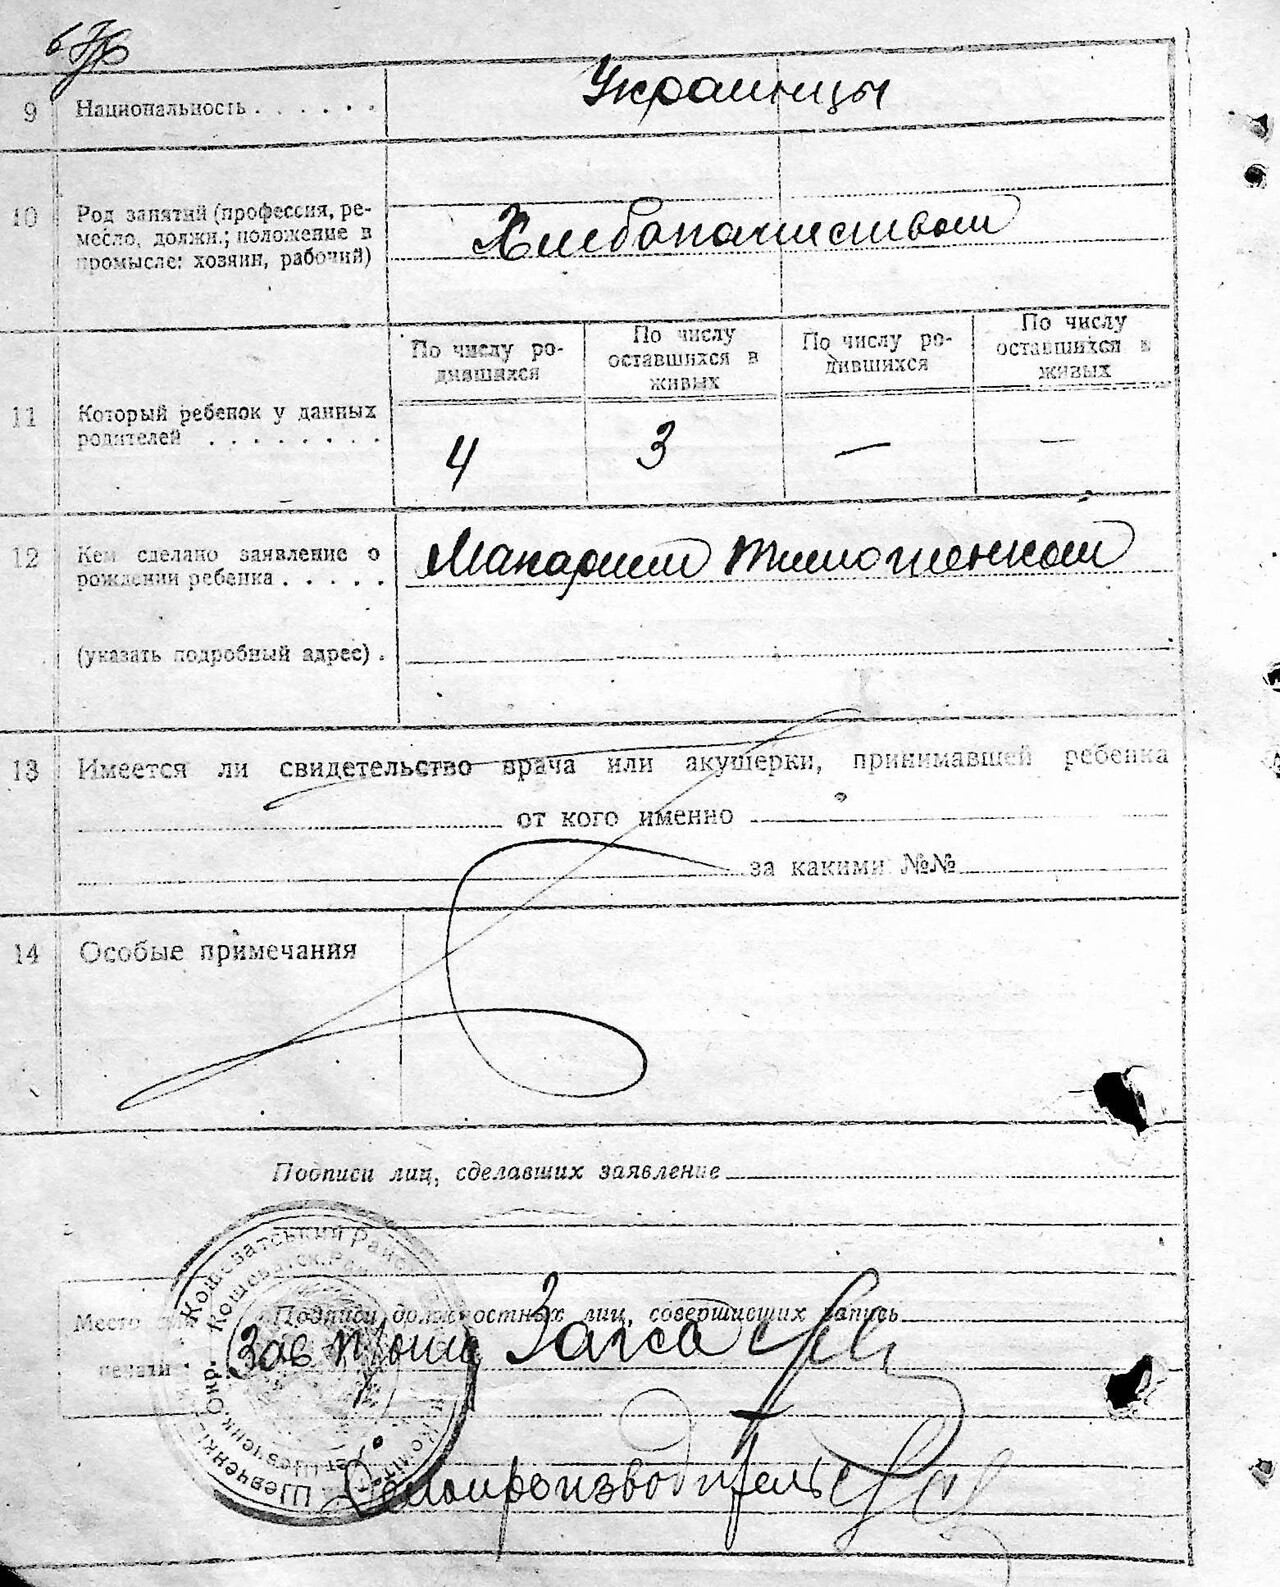 9 Национальность . . . . . . Украинцы
10 Род занятий (профессия, ре-
месло, должн.; положение в
промысле: хозяин, рабочий)
Хлебопашеством
По числу ро-
дившихся
По числу
оставшихся в
живых
По числу ро-
дившихся
По числу
оставшихся в
живых
11 Который ребенок у данных
родителей . . . . . . . .
4 3 — —
12 Кем сделано заявление о
рождении ребенка . . . . .
Макарием Тимошенком
(указать подробный адрес) .
13 Имеется ли свидетельство врача или акушерки, принимавшей ребенка
от кого именно
за какими №№
14 Особые примечания
Подписи лиц, сделавших заявление
Кошеватський Район
Кошеватск. Рай
Место
печати
Подписи должностных лиц, совершивших запись
Зав Загса
Шевченк. Окр.
Делопроизводитель